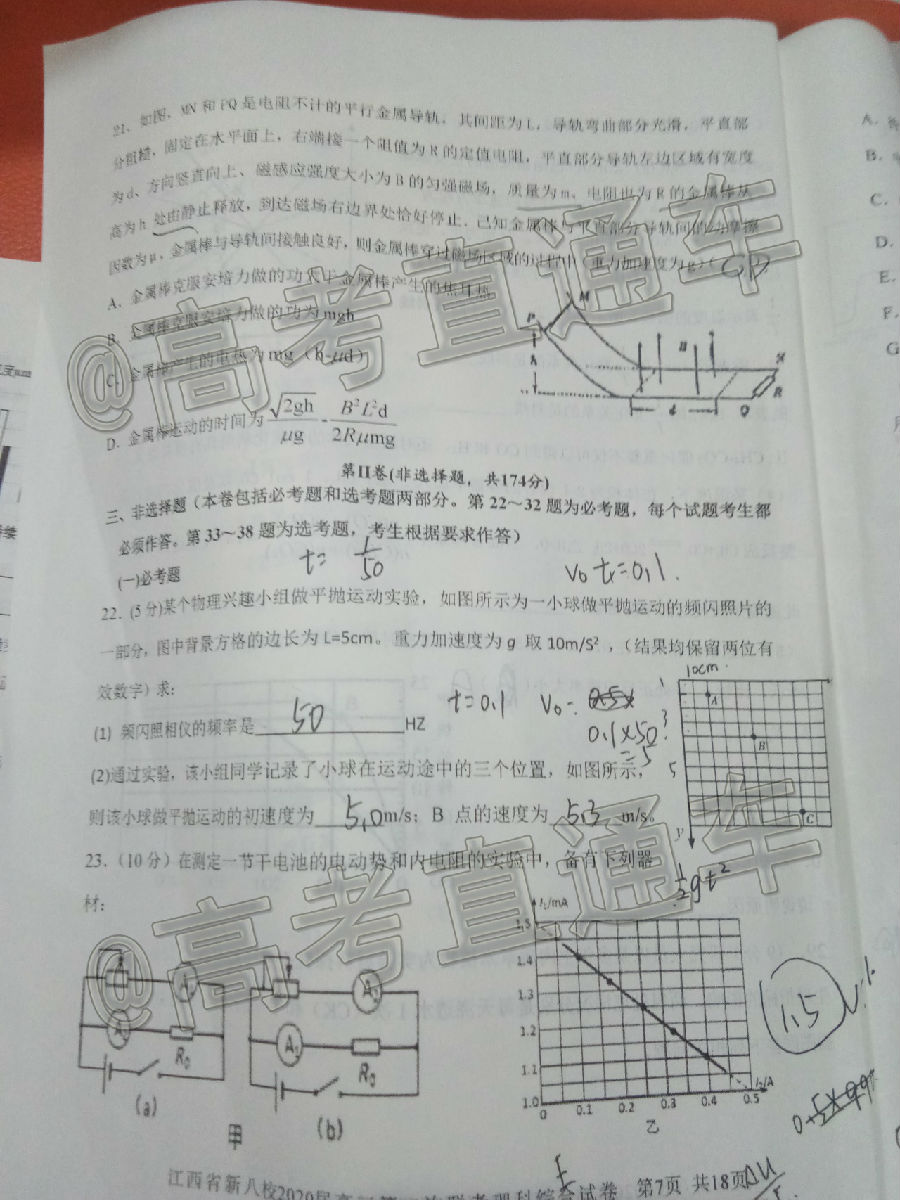 21. 如图，MN 和 PQ 是电阻不计的平行金属导轨，其间距为 L，导轨弯曲部分光滑，平直部
分粗糙，固定在水平面上，右端接一个阻值为 R 的定值电阻，平直部分导轨左边区域有宽度
为 d、方向竖直向上、磁感应强度大小为 B 的匀强磁场，质量为 m、电阻也为 R 的金属棒从
高为 h 处由静止释放，到达磁场右边界处恰好停止．已知金属棒与平直部分导轨间的动摩擦
因数为 μ，金属棒与导轨间接触良好，则金属棒穿过磁场区域的过程中（重力加速度为 g）（ CD
A．金属棒克服安培力做的功大于金属棒产生的焦耳热
B．金属棒克服安培力做的功为 mgh
C．金属棒产生的电热为 mg（h-μd）
D．金属棒运动的时间为 √2gh/μg - B²L²d/2Rμmg
P M h B d N Q R
第II卷(非选择题，共174分)
三、非选择题（本卷包括必考题和选考题两部分。第 22～32 题为必考题，每个试题考生都
必须作答。第 33～38 题为选考题，考生根据要求作答）
t= 1/50
V₀ t=0.1.
(一)必考题
22．(5 分)某个物理兴趣小组做平抛运动实验，如图所示为一小球做平抛运动的频闪照片的
一部分，图中背景方格的边长为 L=5cm。重力加速度为 g 取 10m/S²，（结果均保留两位有
效数字）求：
10cm
t=0.1 V₀=
0.1×50
=5
(1) 频闪照相仪的频率是 50 HZ
A B C y
5
(2)通过实验，该小组同学记录了小球在运动途中的三个位置，如图所示，
则该小球做平抛运动的初速度为 5.0 m/s；B 点的速度为 5.3 m/s。
½gt²
23．（10 分）在测定一节干电池的电动势和内电阻的实验中，备有下列器
材：
A₁ R₀ (a)
A₂ A₁ R₀ (b)
甲
I₁/mA
1.5
1.4
1.3
1.2
1.1
1.0
0 0.1 0.2 0.3 0.4 0.5 I₂/A
乙
1.5
江西省新八校2020届高三第二次联考理科综合试卷 第7页 共18页
@高考直通车
@高考直通车
A．
B．
C．
D．
E．
F．
G